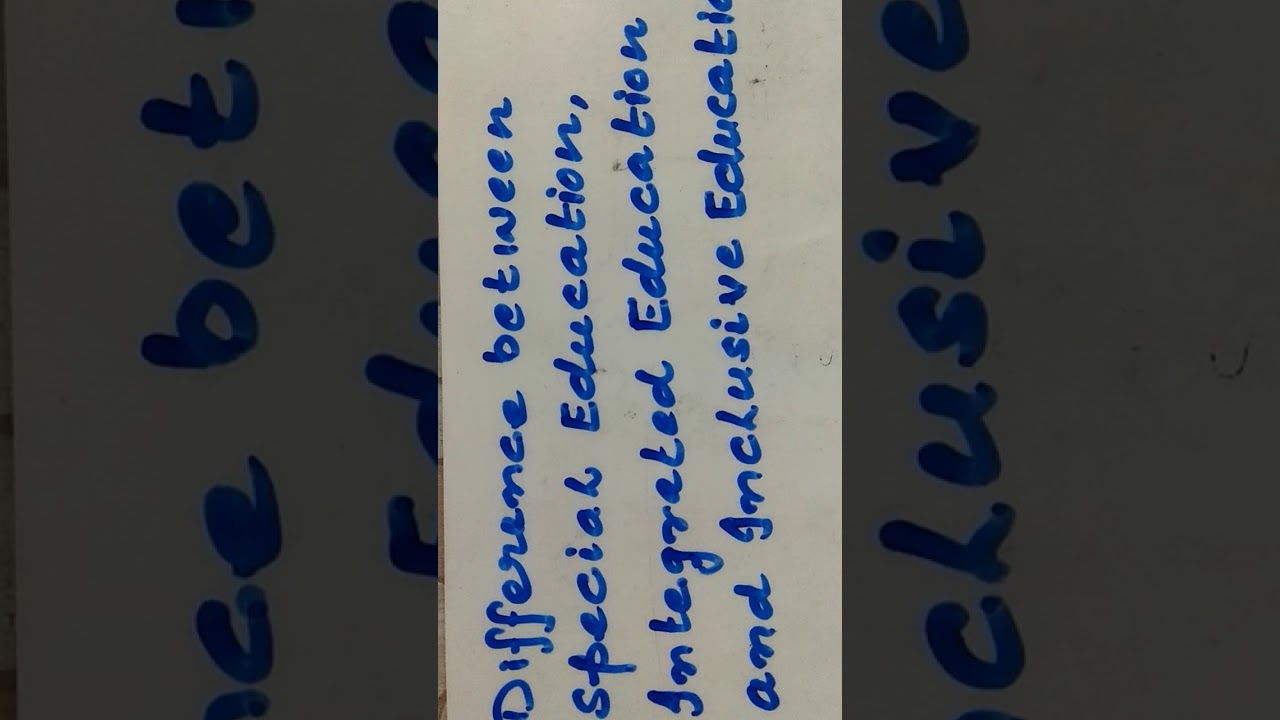 Difference between
Special Education,
Integrated Education
and Inclusive Educatio